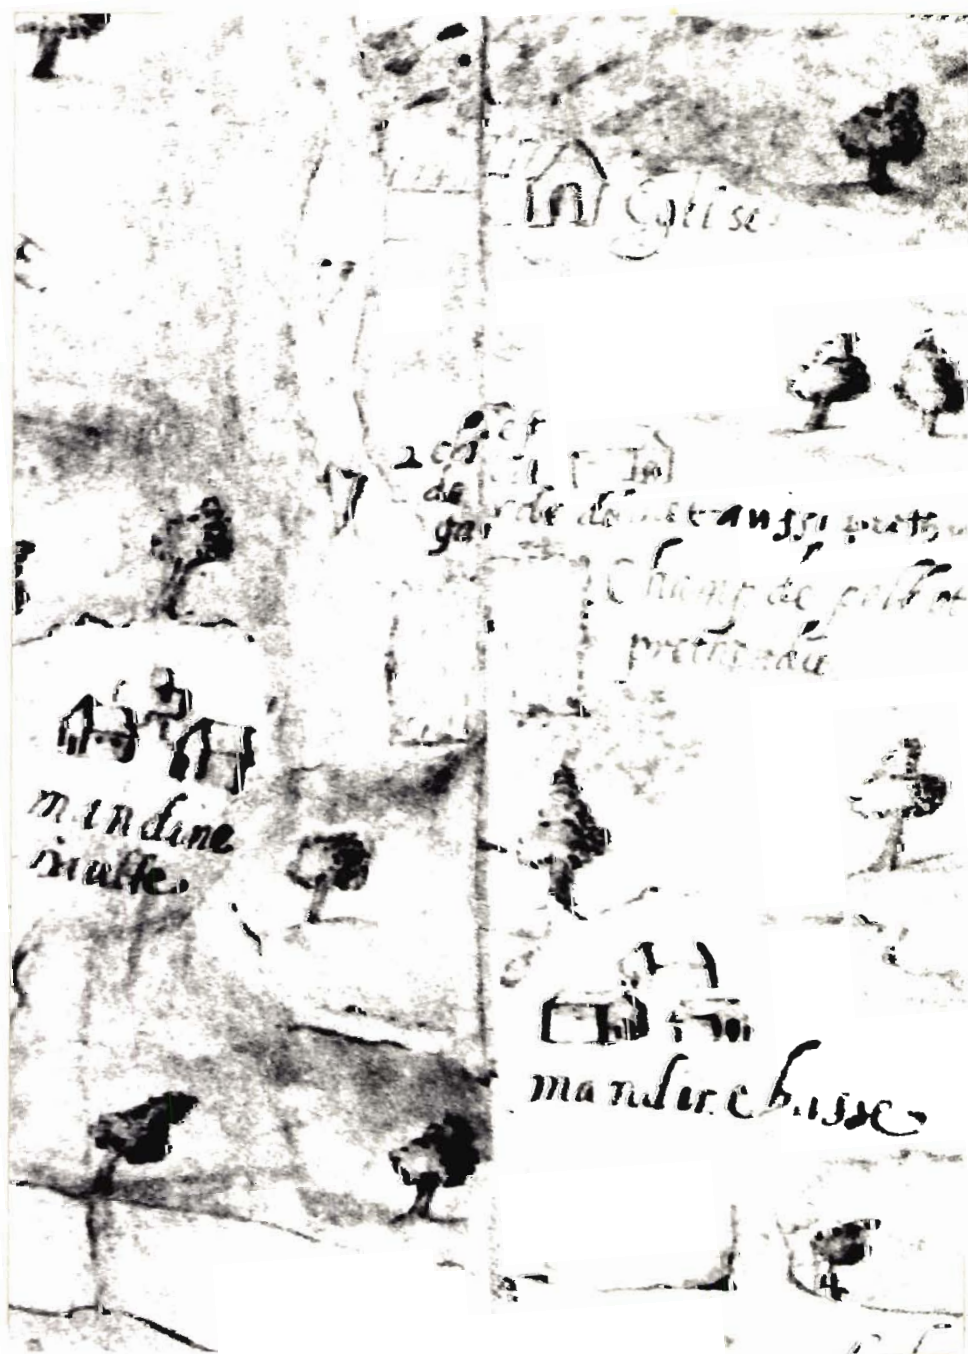 Eglise
2 corps
de
garde dont aussi
Champ de
prethendu
mandine
haulte.
mandine basse